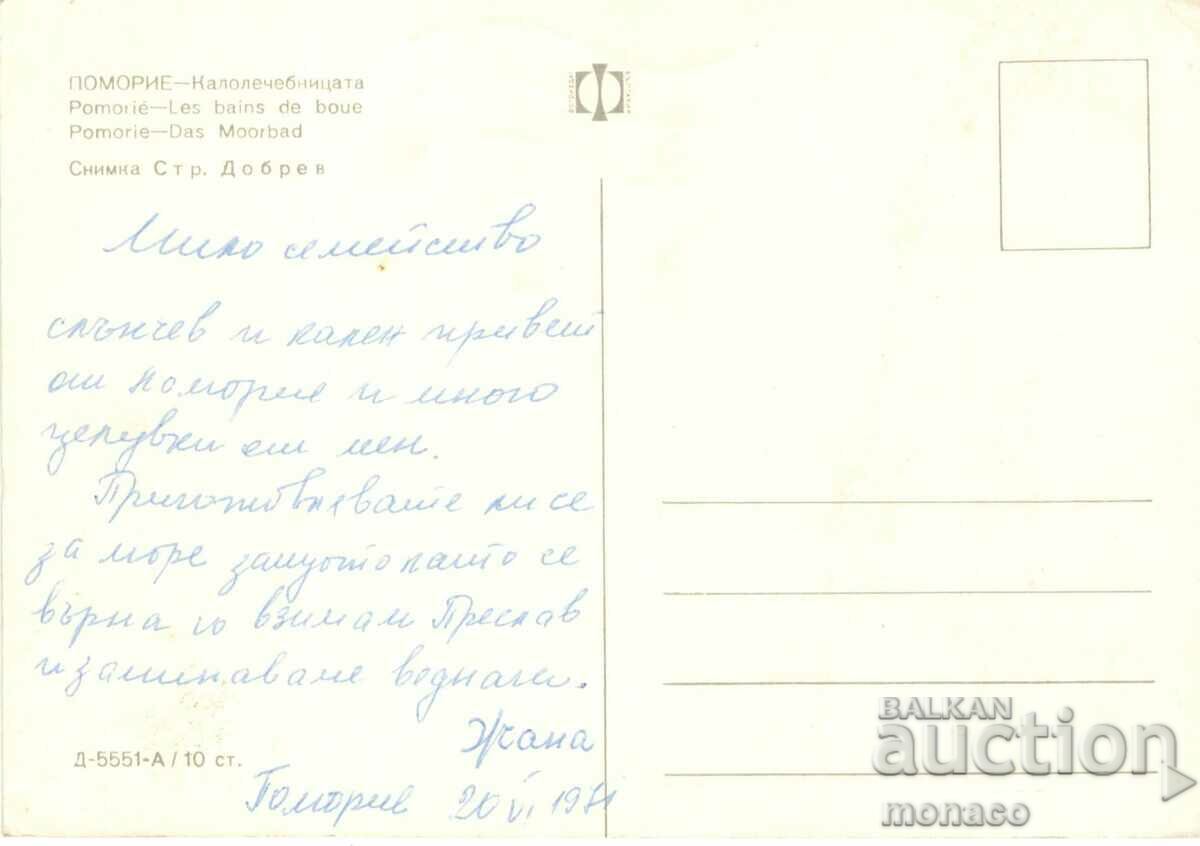 ПОМОРИЕ—Калолечебницата
Pomorié—Les bains de boue
Pomorie—Das Moorbad
Снимка Стр. Добрев
Мило семейство
слънчев и кален привет
от Поморие и много
целувки от мен.
ли се
за море защото като се
върна го взимам Преслав
и заминаваме веднага.
Жана
Поморие 20 VI 1971
Д-5551-А / 10 ст.
BALKAN
auction
monaco